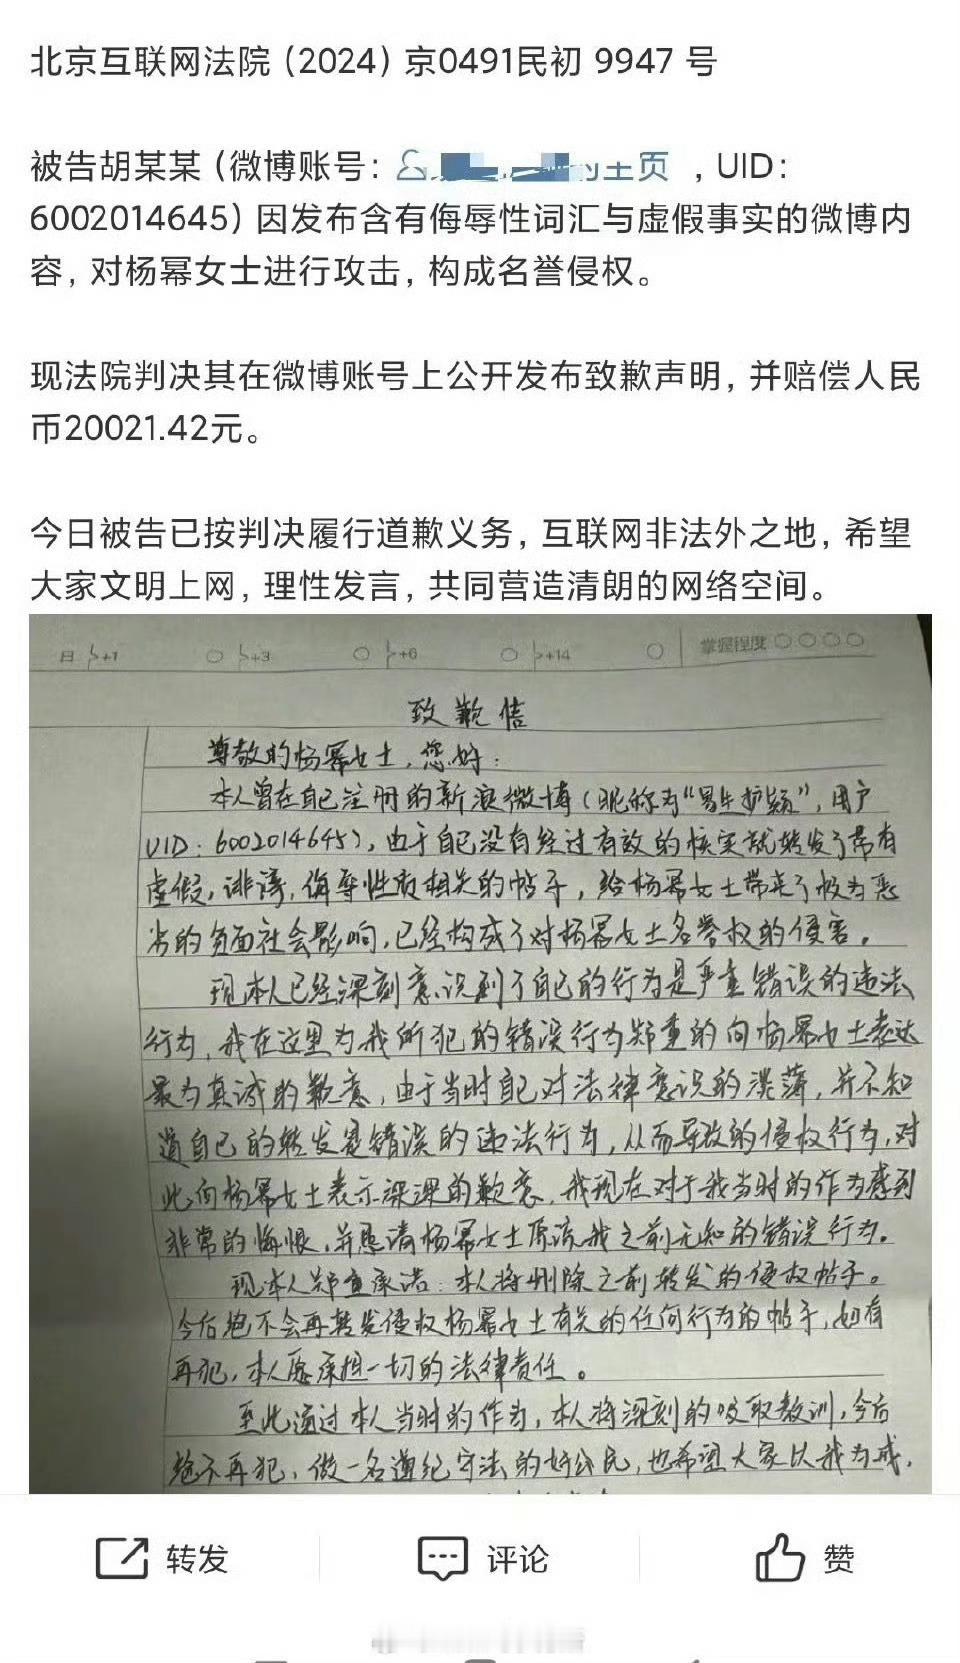 北京互联网法院（2024）京0491民初 9947 号
被告胡某某（微博账号：
主页 ，UID：
6002014645）因发布含有侮辱性词汇与虚假事实的微博内
容，对杨幂女士进行攻击，构成名誉侵权。
现法院判决其在微博账号上公开发布致歉声明，并赔偿人民
币20021.42元。
今日被告已按判决履行道歉义务，互联网非法外之地，希望
大家文明上网，理性发言，共同营造清朗的网络空间。
日 +1 +3 +6 +14 掌握程度
致歉信
尊敬的杨幂女士，您好：
本人曾在自己注册的新浪微博（昵称为“易生护颖”，用户
UID：6002014645），由于自己没有经过有效的核实就转发了带有
虚假，诽谤，侮辱性质相关的帖子，给杨幂女士带来了极为恶
劣的负面社会影响，已经构成了对杨幂女士名誉权的侵害。
现本人已经深刻意识到了自己的行为是严重错误的违法
行为，我在这里为我所犯的错误行为郑重的向杨幂女士表达
最为真诚的歉意，由于当时自己对法律意识的淡薄，并不知
道自己的转发是错误的违法行为，从而导致的侵权行为，对
此向杨幂女士表示深深的歉意，我现在对于我当时的作为感到
非常的悔恨，并恳请杨幂女士原谅我之前无知的错误行为。
现本人郑重承诺：本人将删除之前转发的侵权帖子。
今后绝不会再转发侵权杨幂女士有关的任何行为的帖子，如有
再犯，本人愿承担一切的法律责任。
至此通过本人当时的作为，本人将深刻的吸取教训，今后
绝不再犯，做一名遵纪守法的好公民，也希望大家以我为戒，
转发 评论 赞